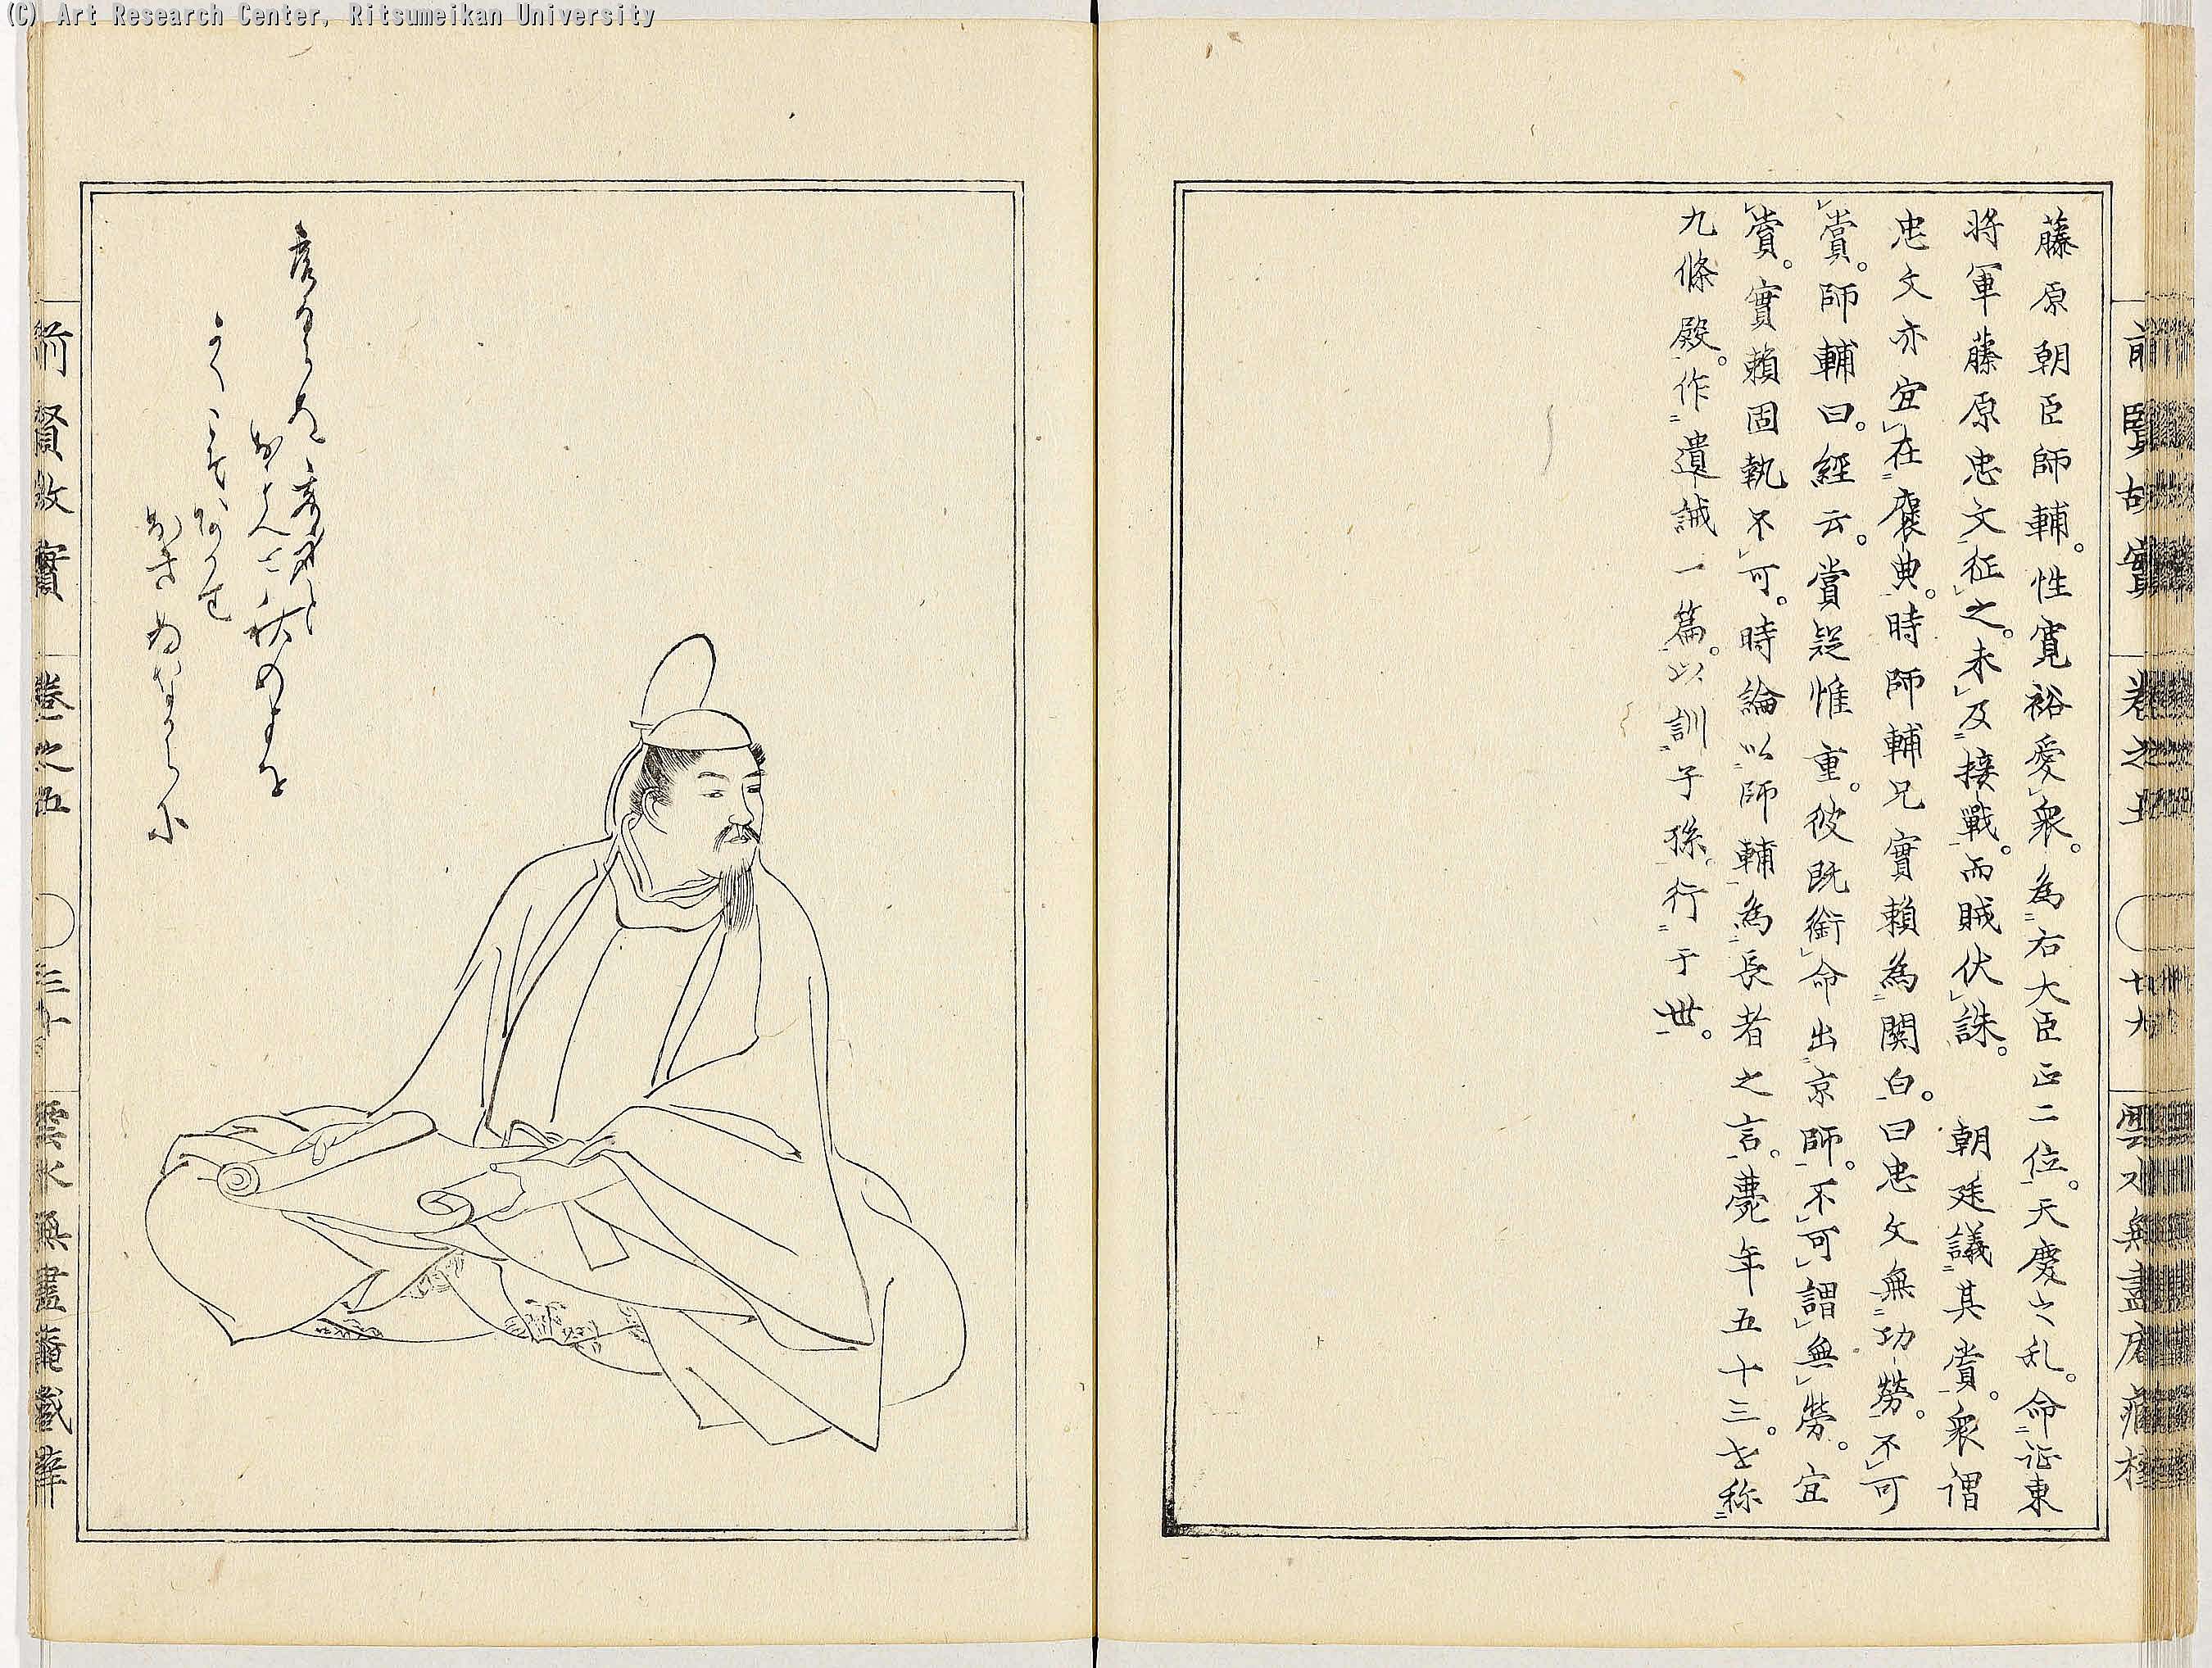 (C) Art Research Center, Ritsumeikan University
前賢故實 卷之五 廿九 雲水無盡庵藏梓
藤原朝臣師輔。性寛裕愛衆。為右大臣正二位。天慶之乱。命征東
將軍藤原忠文征之。未及接戰。而賊伏誅。 朝廷議其賞。衆謂
忠文亦宜在褒典。時師輔兄實賴為関白。曰忠文無功勞。不可
賞。師輔曰。經云。賞疑惟重。彼既銜命出京師。不可謂無勞。宜
賞。實賴固執不可。時論以師輔為長者之言。薨年五十三。世称
九條殿。作遺誡一篇。以訓子孫。行于世。
前賢故實 卷之五 三十 雲水無盡庵藏梓